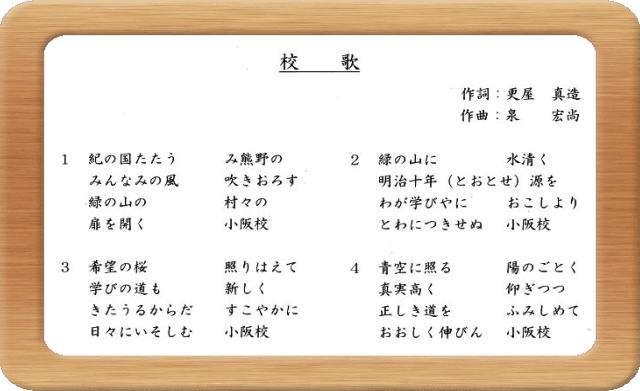 校　歌
作詞：更屋　真造
作曲：泉　宏尚
1　紀の国たたう　み熊野の
みんなみの風　吹きおろす
緑の山の　村々の
扉を開く　小阪校
2　緑の山に　水清く
明治十年（とおとせ）源を
わが学びやに　おこしより
とわにつきせぬ　小阪校
3　希望の桜　照りはえて
学びの道も　新しく
きたうるからだ　すこやかに
日々にいそしむ　小阪校
4　青空に照る　陽のごとく
真実高く　仰ぎつつ
正しき道を　ふみしめて
おおしく伸びん　小阪校